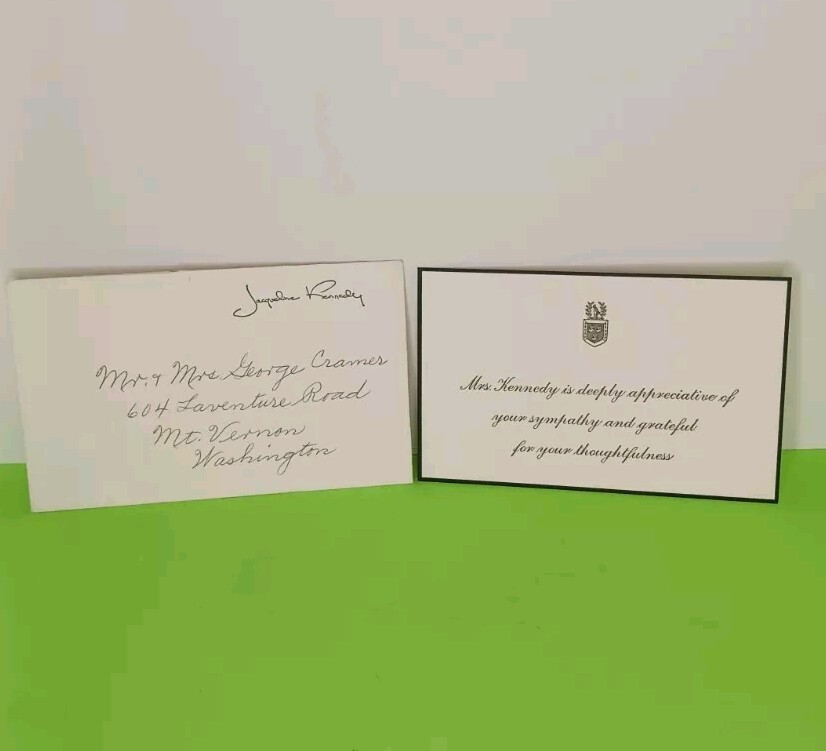 Jacqueline Kennedy
Mr. & Mrs. George Cramer
604 Laventure Road
Mt. Vernon
Washington
Mrs. Kennedy is deeply appreciative of
your sympathy and grateful
for your thoughtfulness